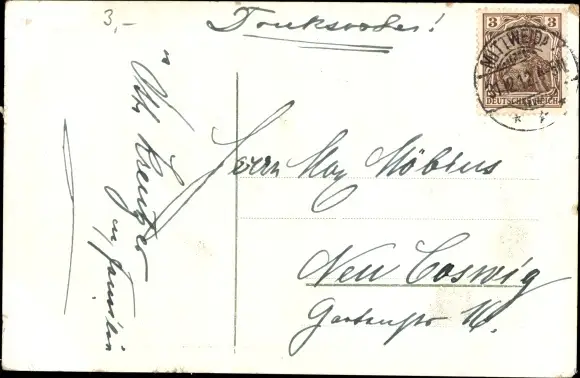 3,-
Drucksache!
3 3
DEUTSCHES REICH
MITTWEIDA
Herrn Max Möbius
Neu Coswig
Gartenstr
Otto Kreutzer
u. Familie